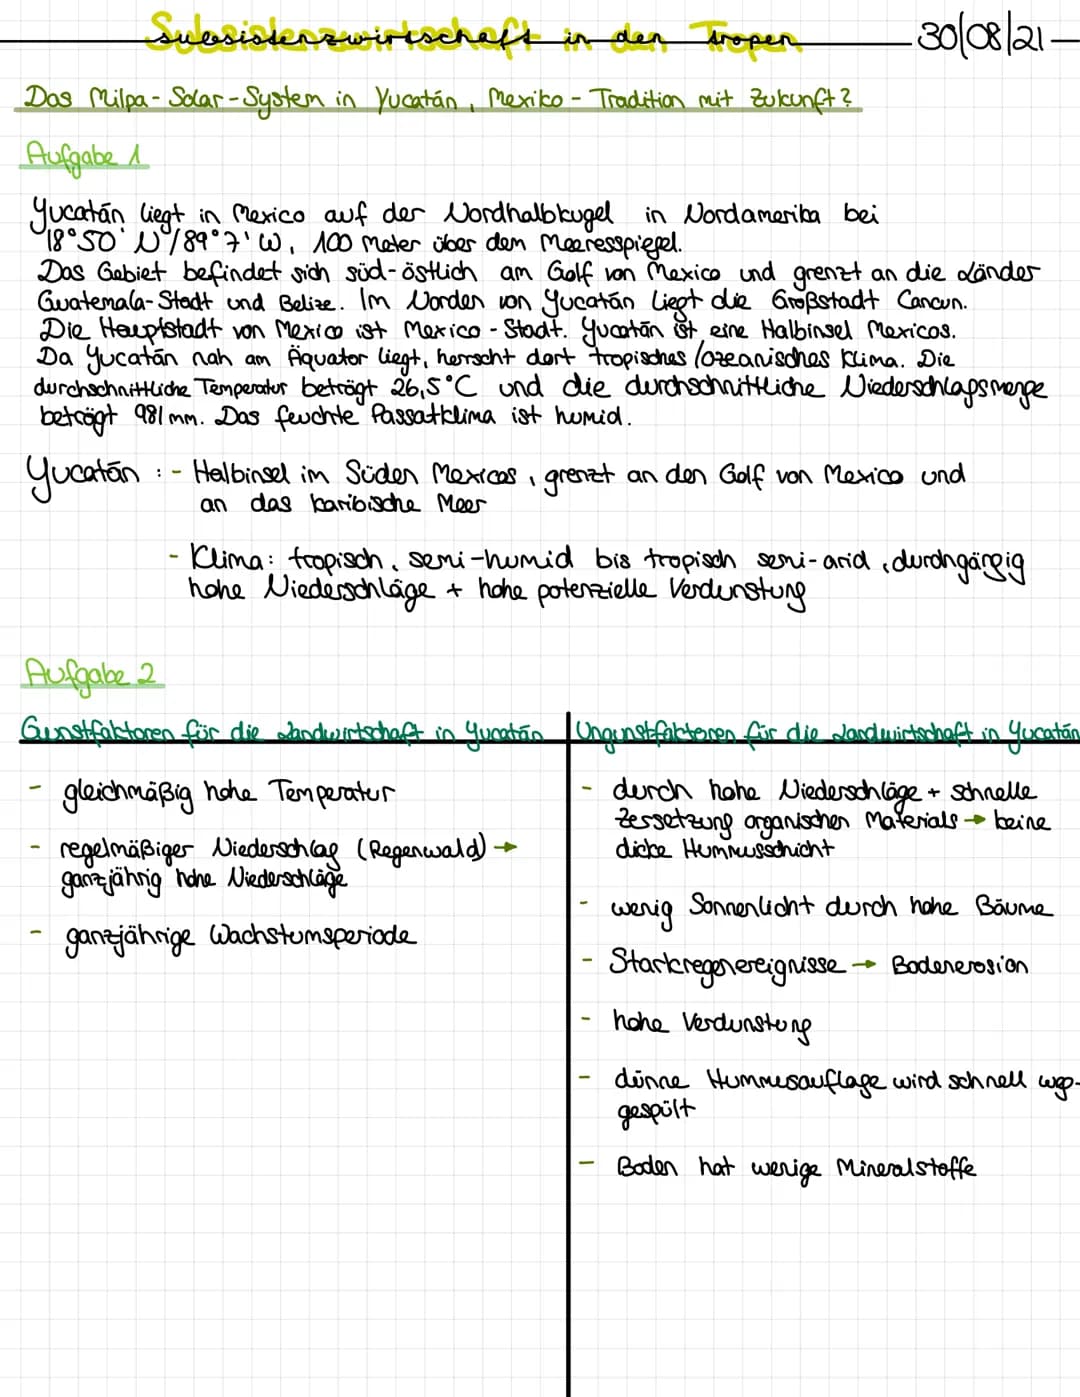 Subsistenzwirtschaft in den Tropen 30/08/21
Das Milpa-Solar-System in Yucatán, Mexiko - Tradition mit Zukunft?
Aufgabe 1
Yucatán liegt in Mexico auf der Nordhalbkugel in Nordamerika bei
18°50' N/89°7' W, 100 Meter über dem Meeresspiegel.
Das Gebiet befindet sich süd-östlich am Golf von Mexico und grenzt an die Länder
Guatemala-Stadt und Belize. Im Norden von Yucatán liegt die Großstadt Cancun.
Die Hauptstadt von Mexico ist Mexico-Stadt. Yucatán ist eine Halbinsel Mexicos.
Da Yucatán nah am Äquator liegt, herrscht dort tropisches/ozeanisches Klima. Die
durchschnittliche Temperatur beträgt 26,5°C und die durchschnittliche Niederschlagsmenge
beträgt 981 mm. Das feuchte Passatklima ist humid.
Yucatán : - Halbinsel im Süden Mexicos, grenzt an den Golf von Mexico und
an das karibische Meer
- Klima: tropisch, semi-humid bis tropisch semi-arid, durchgängig
hohe Niederschläge + hohe potenzielle Verdunstung
Aufgabe 2
Gunstfaktoren für die Landwirtschaft in Yucatán
- gleichmäßig hohe Temperatur
- regelmäßiger Niederschlag (Regenwald) →
ganzjährig hohe Niederschläge
- ganzjährige Wachstumsperiode
Ungunstfaktoren für die Landwirtschaft in Yucatán
- durch hohe Niederschläge + schnelle
Zersetzung organischen Materials → keine
dicke Hummusschicht
- wenig Sonnenlicht durch hohe Bäume
- Starkregenereignisse → Bodenerosion
- hohe Verdunstung
- dünne Hummusauflage wird schnell weg-
gespült
- Boden hat wenige Mineralstoffe